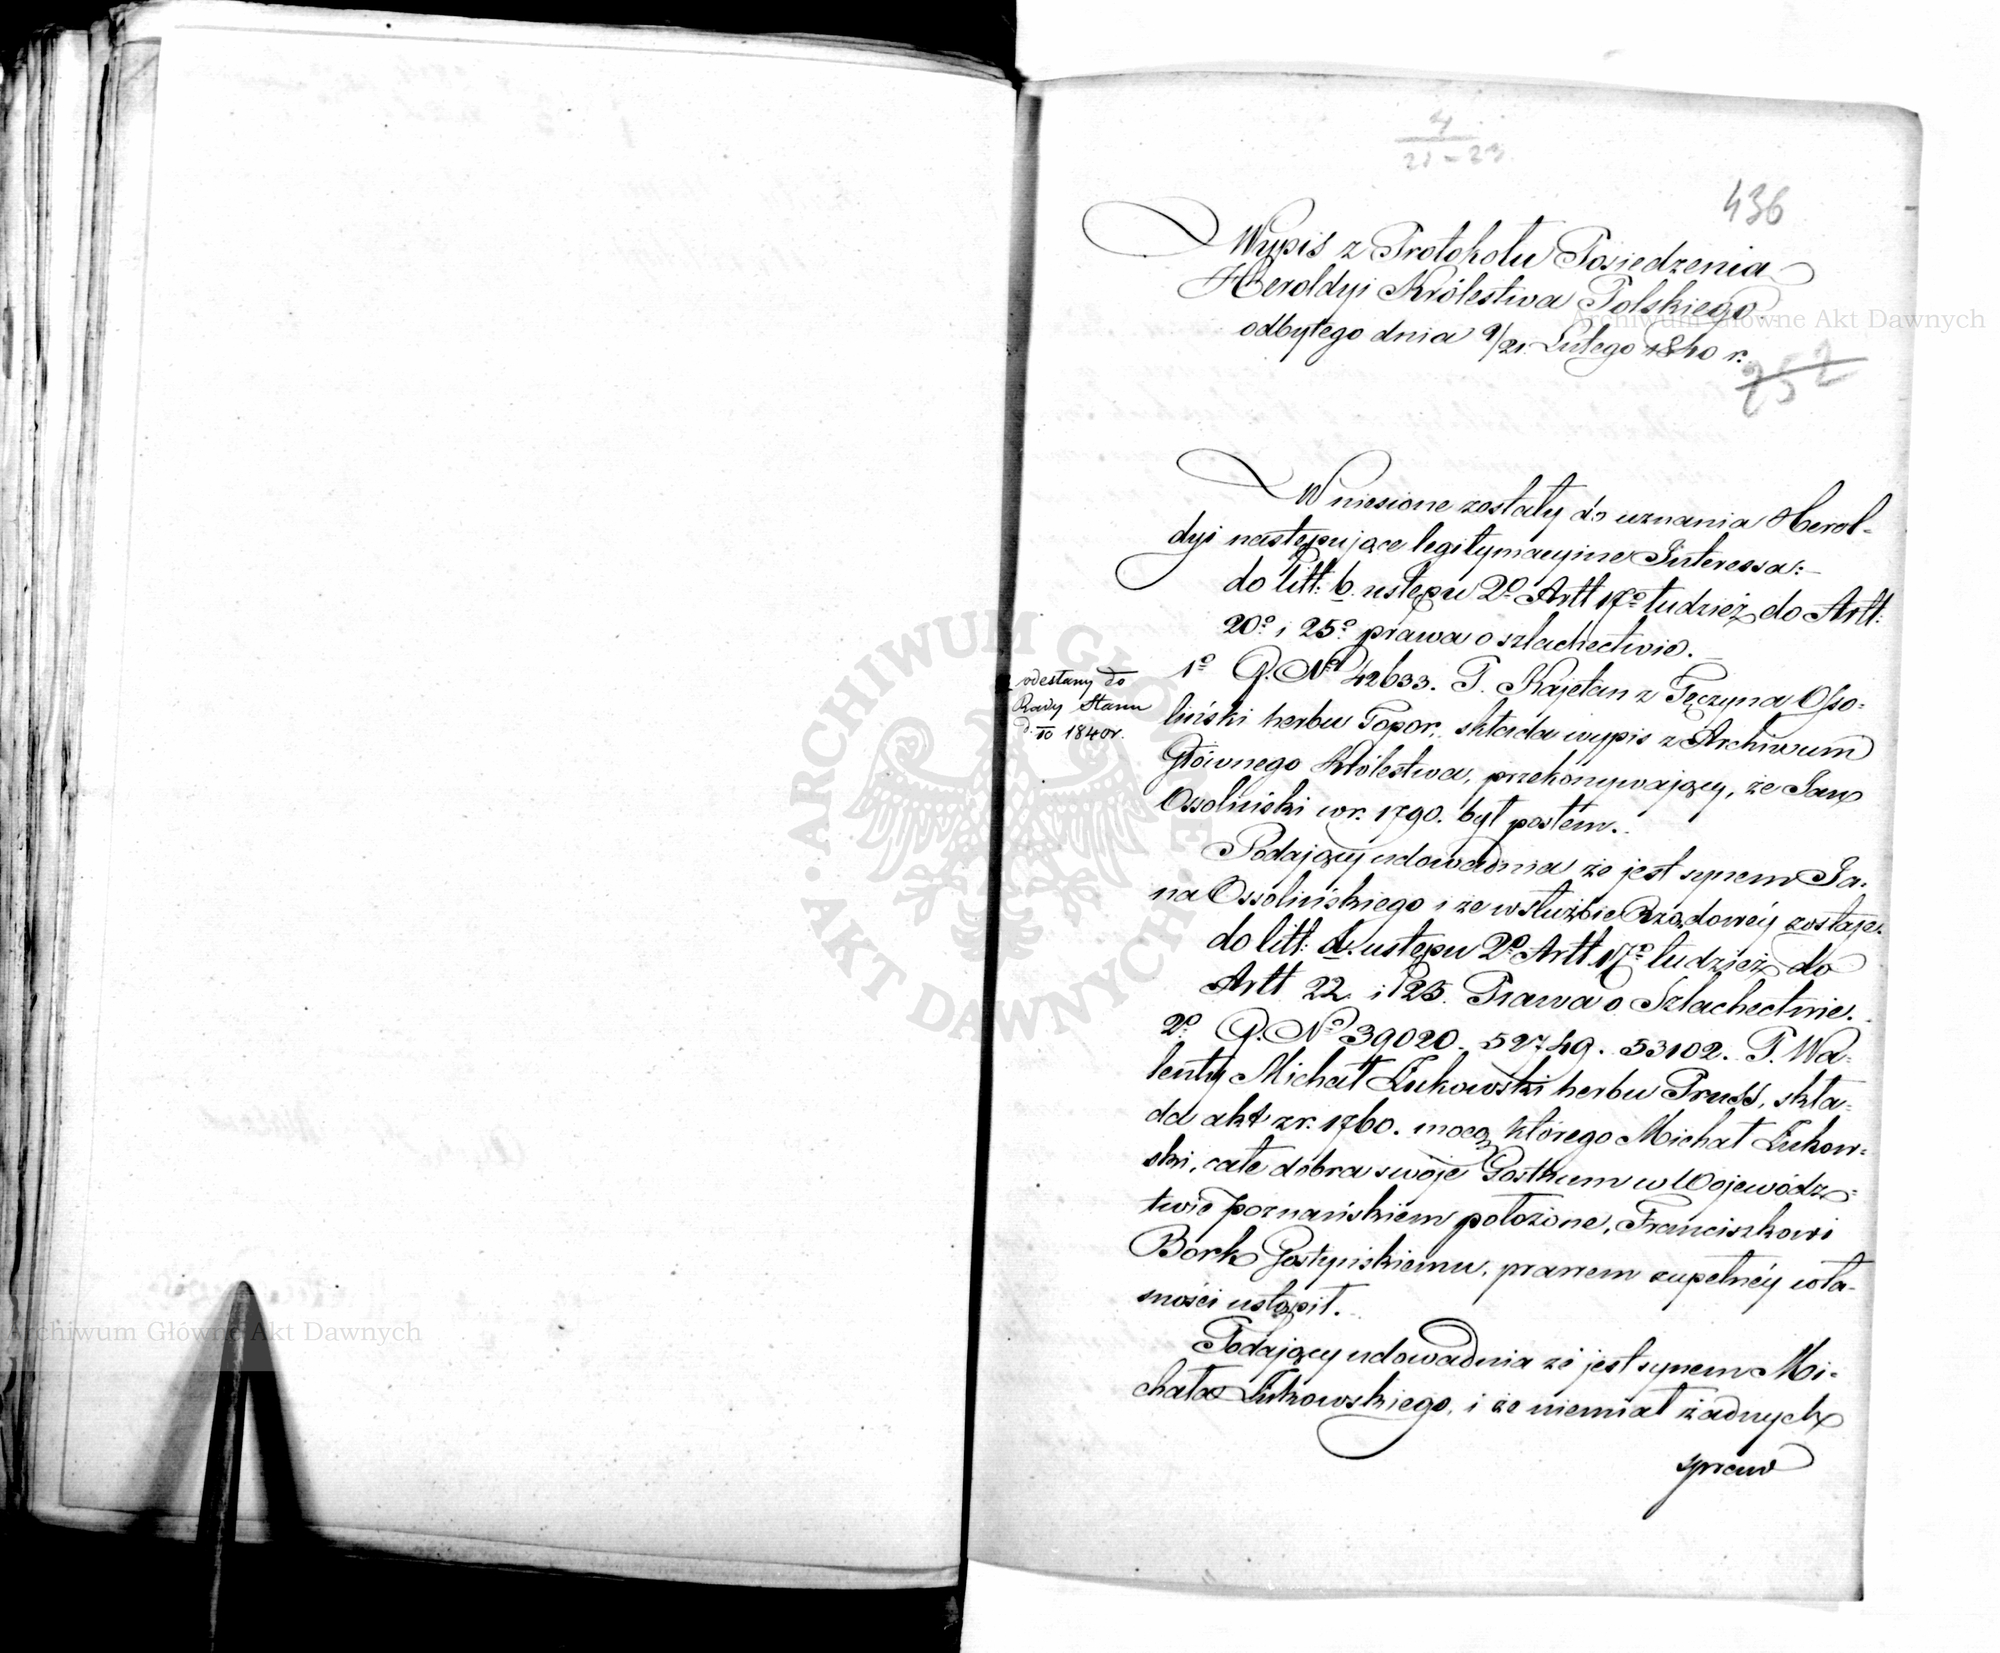 4
21-23
436
Wypis z Protokołu Posiedzenia
Heroldyi Królestwa Polskiego
odbytego dnia 9/21. Lutego 1840 r.
252
Wniesione zostały do uznania Herol-
dyi następujące legitymacyine Interessa:
do litt: b. ustępu 2º Artt 17º tudzież do Artt:
20º i 25º prawa o szlachectwie.
odesłany do
Rady Stanu
1840 r.
1º G. Nº 42633. P. Kajetan z Tęczyna Osso-
liński herbu Topor, składa wypis z Archiwum
Głównego Królestwa, przekonywający, że Jan
Ossoliński w r. 1790. był posłem.
Podający udowadnia że jest synem Ja-
na Ossolińskiego i że w służbie Rządowéy zostaje.
do litt: d. ustępu 2º Artt 17º tudzież do
Artt 22 i 25. Prawa o Szlachectwie.
2º G. Nº 39020. 52749. 53102. P. Wa-
lenty Michał Łukowski herbu Pruss, skła-
da akt z r. 1760. mocą którego Michał Łukow-
ski, całe dobra swoje Gostkum w Wojewódz-
twie poznańskiém położone, Franciszkowi
Bork Gostyńskiemu, prawem zupełnéy wła-
sności ustąpił.
Podający udowadnia że jest synem Mi-
chała Łukowskiego, i że niemiał żadnych
spraw
Archiwum Główne Akt Dawnych
Archiwum Główne Akt Dawnych
ARCHIWUM GŁÓWNE AKT DAWNYCH